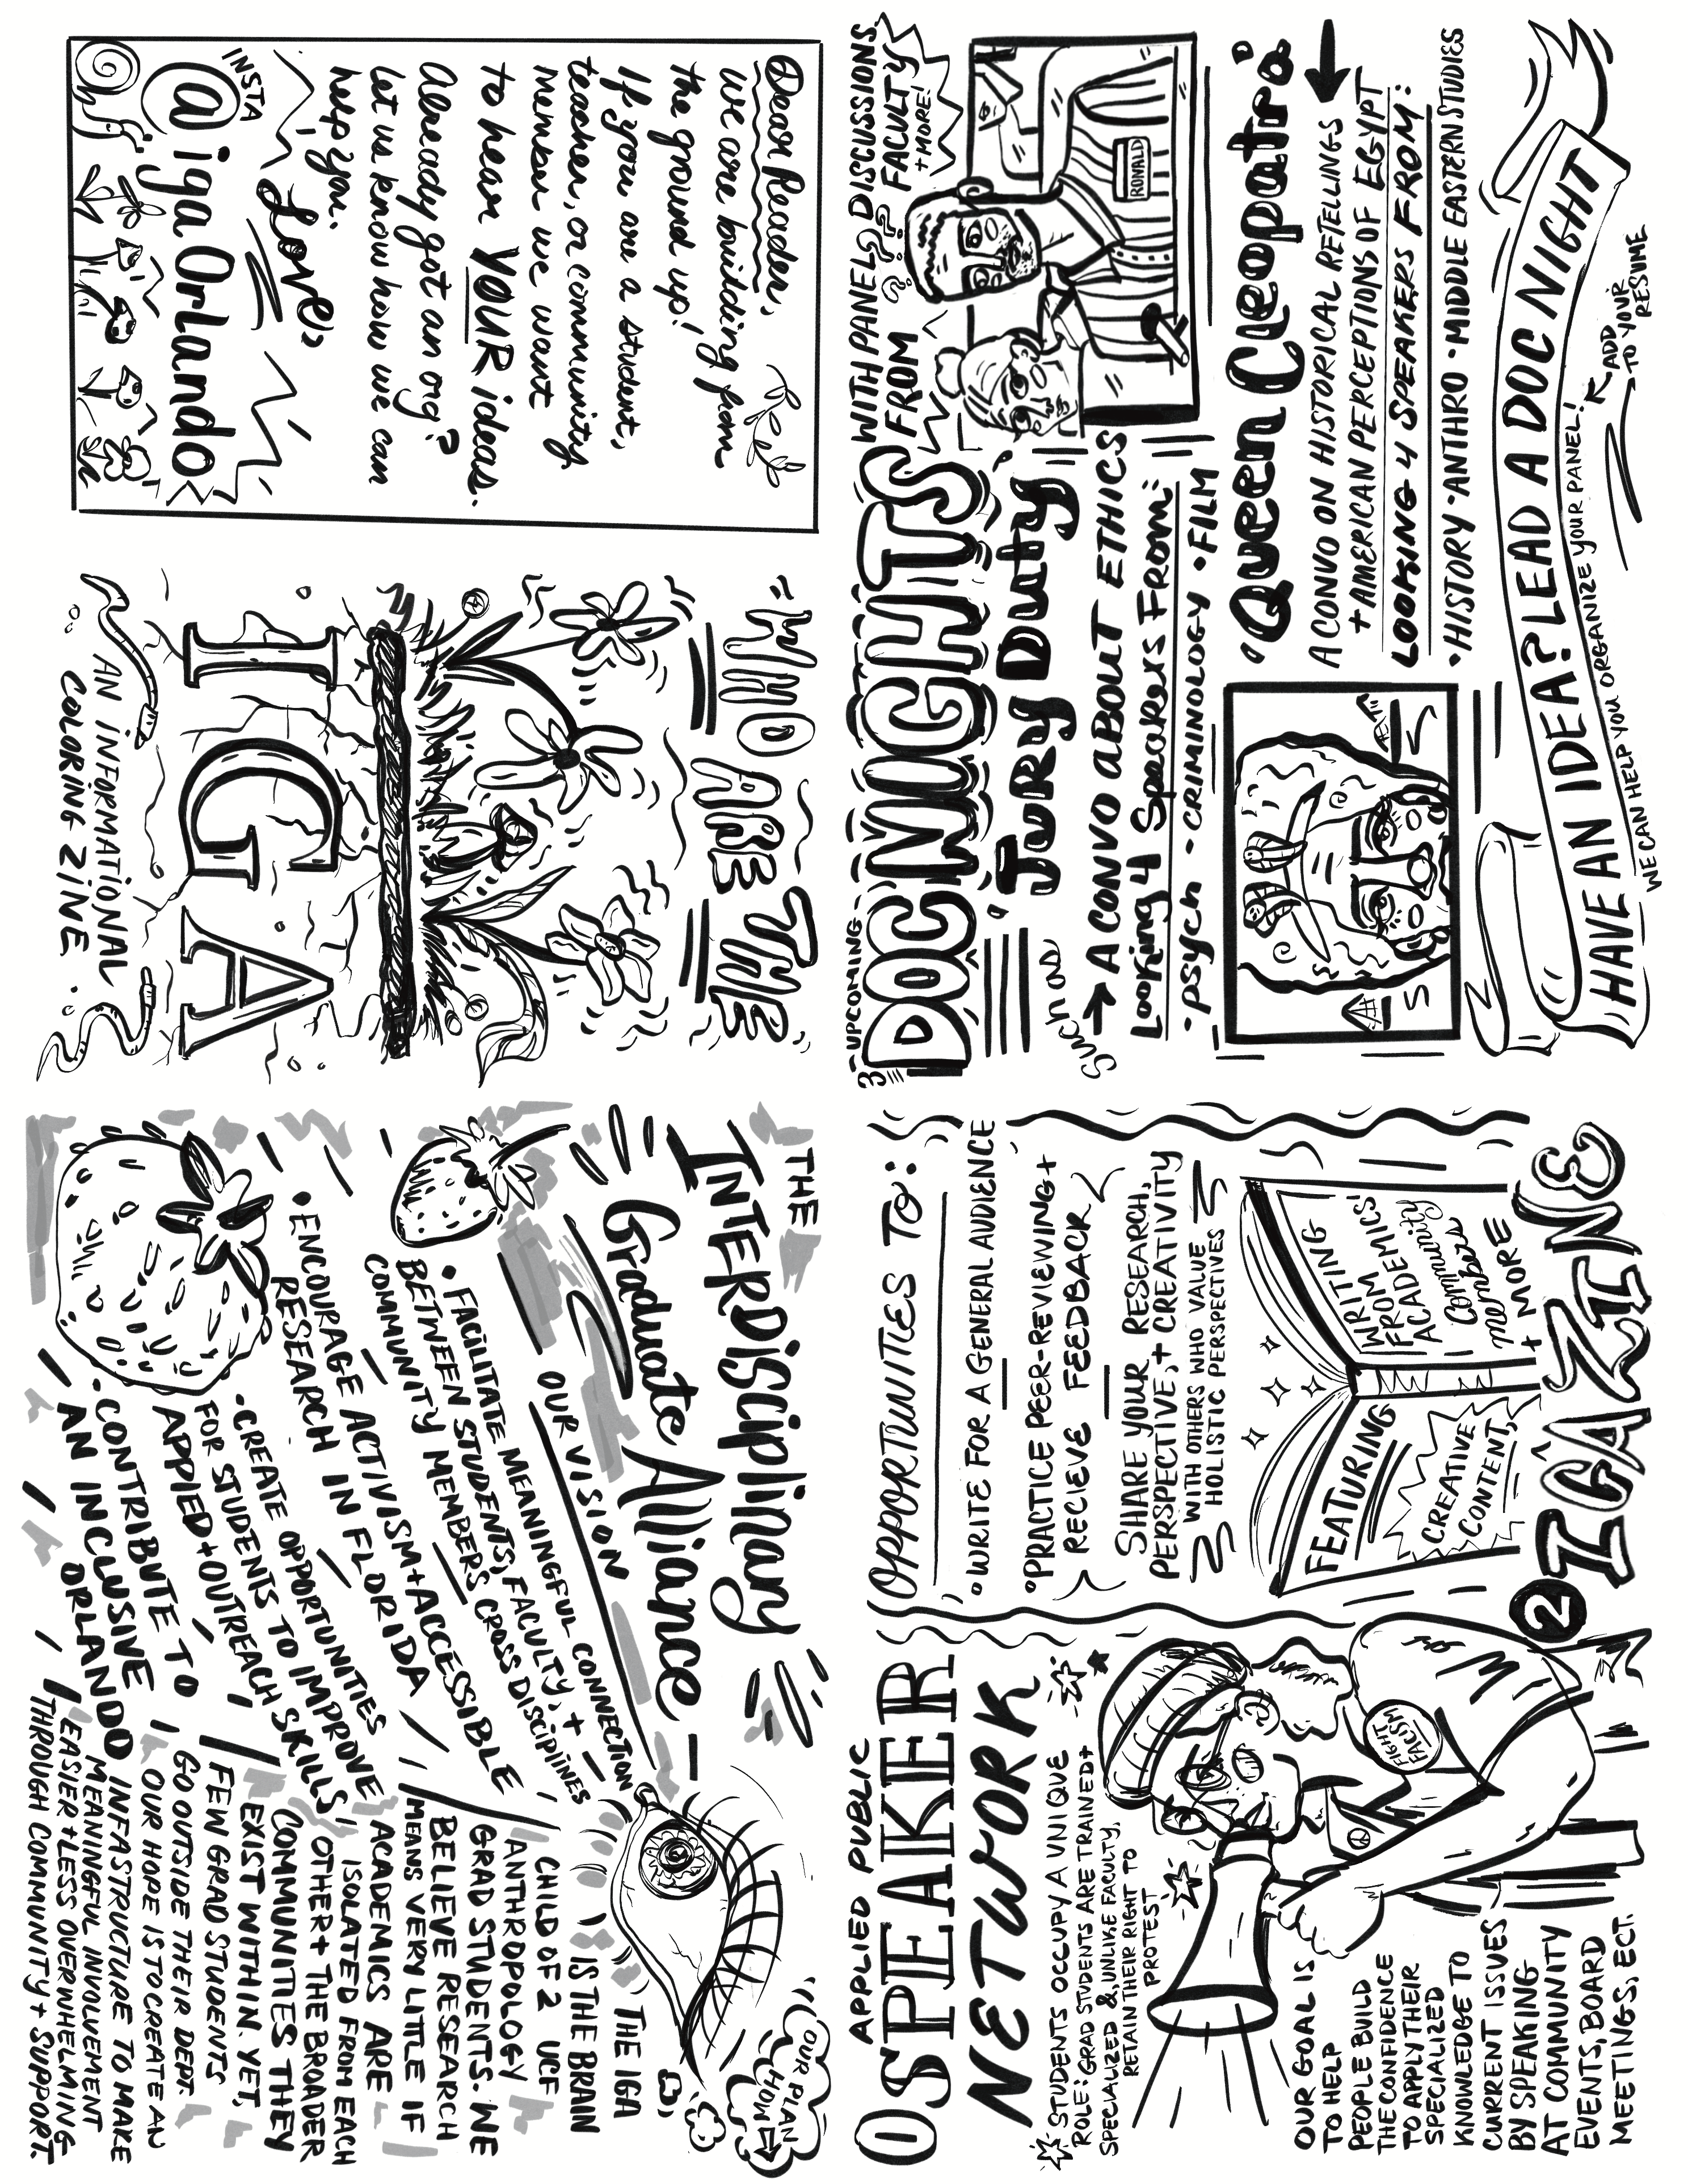 WHO ARE THE
IGA
AN INFORMATIONAL
COLORING ZINE.
THE
INTERDISCIPLINARY
Graduate Alliance
OUR VISION
• FACILITATE MEANINGFUL CONNECTION
BETWEEN STUDENTS, FACULTY, +
COMMUNITY MEMBERS CROSS DISCIPLINES
• ENCOURAGE ACTIVISM + ACCESSIBLE
RESEARCH IN FLORIDA
• CREATE OPPORTUNITIES
FOR STUDENTS TO IMPROVE
APPLIED + OUTREACH SKILLS
• CONTRIBUTE TO
AN INCLUSIVE
ORLANDO
THE IGA
IS THE BRAIN
CHILD OF 2 UCF
ANTHROPOLOGY
GRAD STUDENTS. WE
BELIEVE RESEARCH
MEANS VERY LITTLE IF
ACADEMICS ARE
ISOLATED FROM EACH
OTHER + THE BROADER
COMMUNITIES THEY
EXIST WITHIN. YET,
FEW GRAD STUDENTS
GO OUTSIDE THEIR DEPT.
OUR HOPE IS TO CREATE AN
INFASTRUCTURE TO MAKE
MEANINGFUL INVOLVEMENT
EASIER + LESS OVERWHELMING
THROUGH COMMUNITY + SUPPORT.
OUR PLAN
HOW
APPLIED PUBLIC
SPEAKER
NETWORK
STUDENTS OCCUPY A UNIQUE
ROLE: GRAD STUDENTS ARE TRAINED +
SPECIALIZED &, UNLIKE FACULTY,
RETAIN THEIR RIGHT TO
PROTEST
FIGHT
FACISM
OUR GOAL IS
TO HELP
PEOPLE BUILD
THE CONFIDENCE
TO APPLY THEIR
SPECIALIZED
KNOWLEDGE TO
CURRENT ISSUES
BY SPEAKING
AT COMMUNITY
EVENTS, BOARD
MEETINGS, ECT.
OPPORTUNITIES TO:
• WRITE FOR A GENERAL AUDIENCE
• PRACTICE PEER-REVIEWING +
RECIEVE FEEDBACK
SHARE YOUR RESEARCH,
PERSPECTIVE, + CREATIVITY
WITH OTHERS WHO VALUE
HOLISTIC PERSPECTIVES
FEATURING
CREATIVE
CONTENT,
WRITING
FROM
ACADEMICS'
Community
members
+ MORE
2 IGA ZINE
3 -UPCOMING-
DOC NIGHTS
WITH PANEL DISCUSSIONS
FROM ??? FACULTY
+ MORE!
such as
• Jury Duty
→ A CONVO ABOUT ETHICS
Looking 4 Speakers From:
• PSYCH • CRIMINOLOGY • FILM
RONALD
• Queen Cleopatra
A CONVO ON HISTORICAL RETELLINGS
+ AMERICAN PERCEPTIONS OF EGYPT
LOOKING 4 SPEAKERS FROM:
• HISTORY • ANTHRO • MIDDLE EASTERN STUDIES
HAVE AN IDEA? LEAD A DOC NIGHT
WE CAN HELP YOU ORGANIZE YOUR PANEL!
ADD
TO YOUR
RESUME
Dear Reader,
we are building from
the ground up!
If you are a student,
teacher, or community
member we want
to hear YOUR ideas.
Already got an org?
Let us know how we can
help you.
Love,
INSTA
@igaOrlando